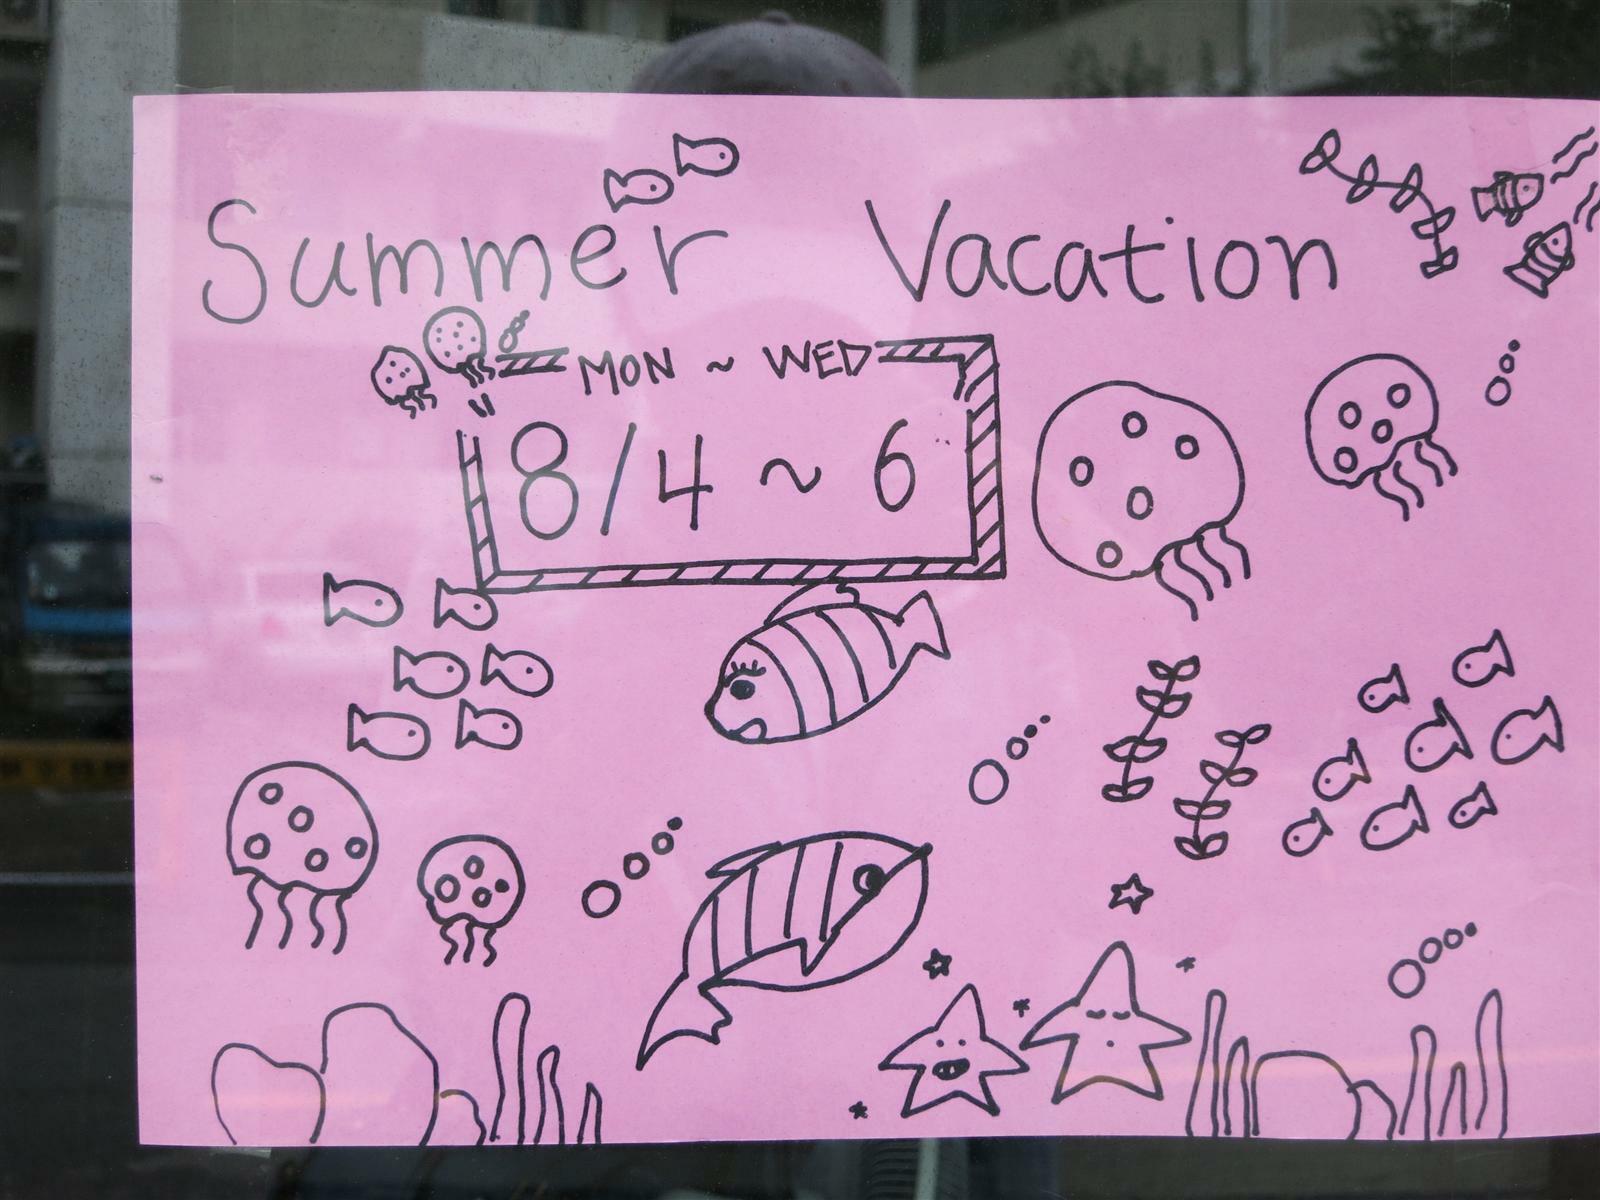 Summer Vacation
MON ~ WED
8/4 ~ 6